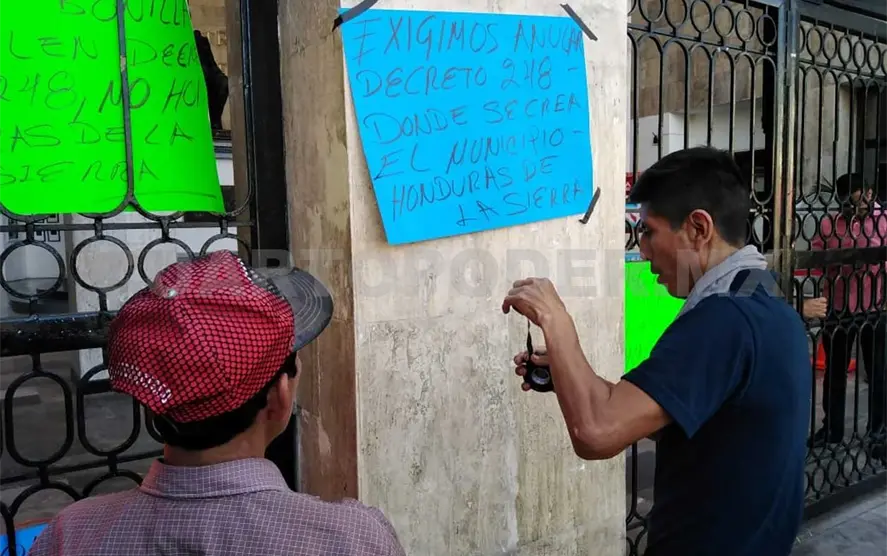 BONILLA
EN DECRE
248, NO HON
RAS DE LA
SIERRA
EXIGIMOS ANULAR
DECRETO 248 -
DONDE SE CREA
EL MUNICIPIO -
HONDURAS DE
LA SIERRA
PODER.MX